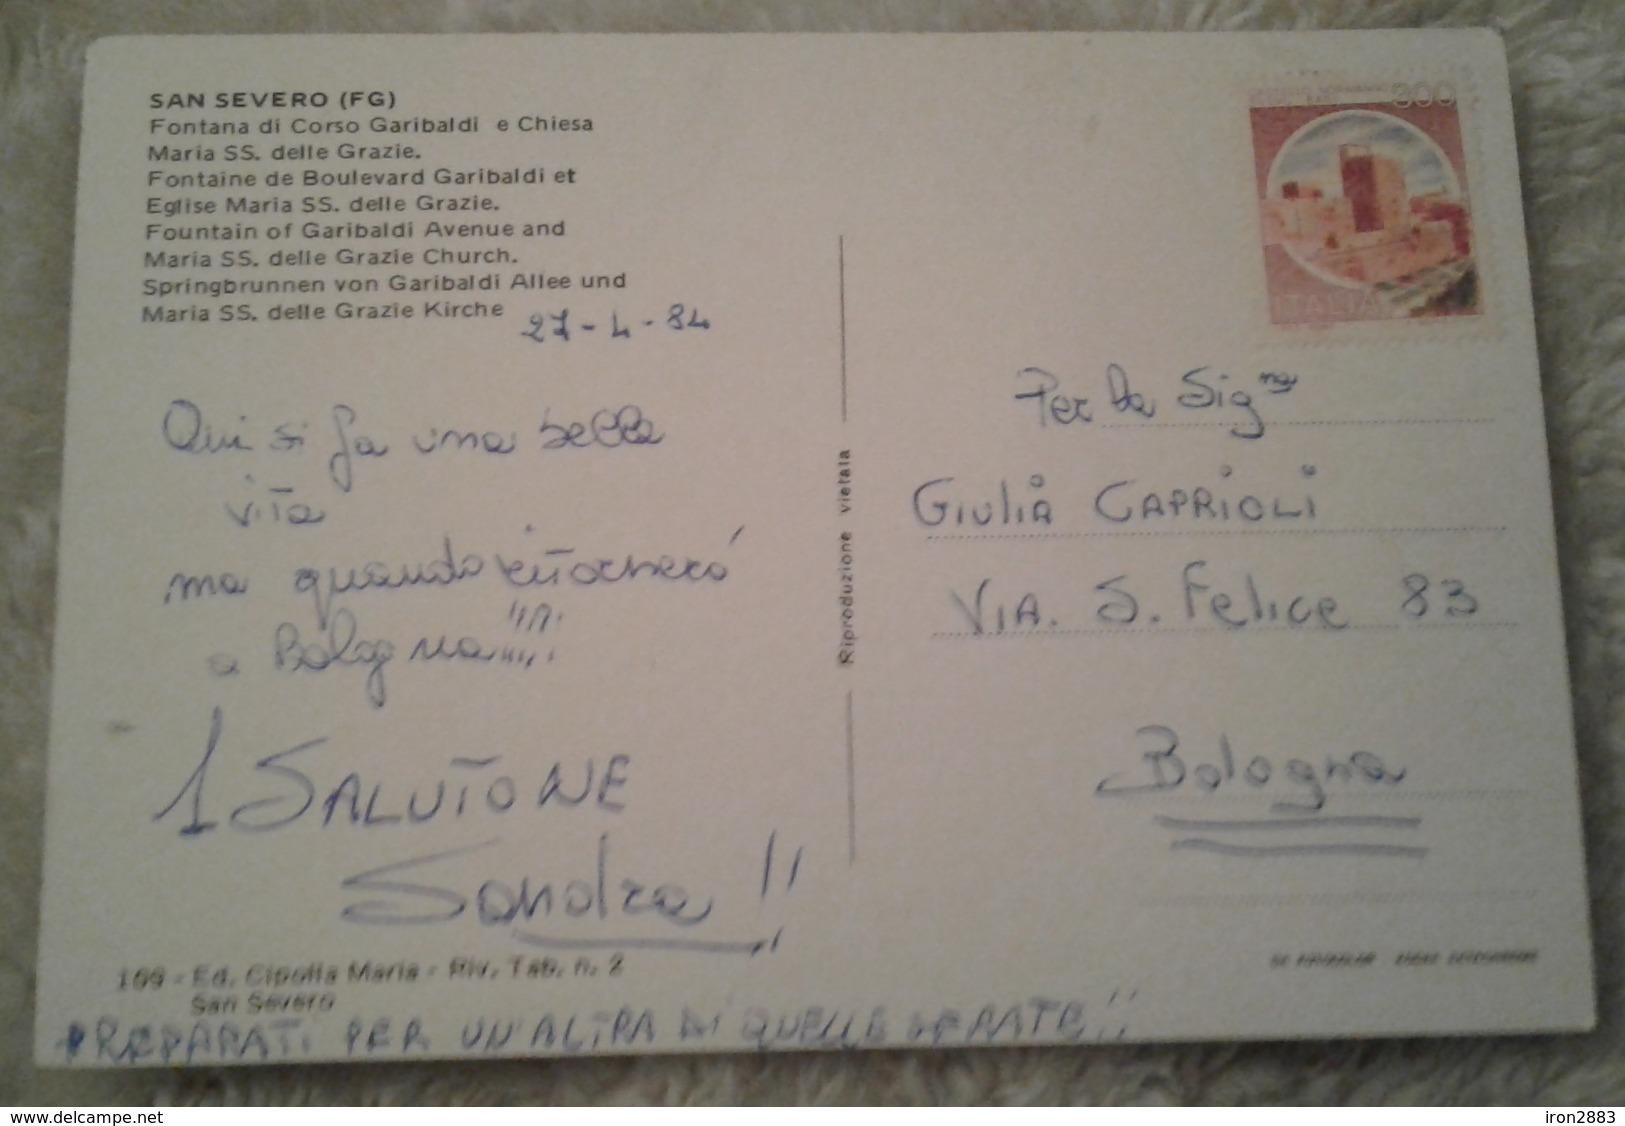 SAN SEVERO (FG)
Fontana di Corso Garibaldi e Chiesa
Maria SS. delle Grazie.
Fontaine de Boulevard Garibaldi et
Eglise Maria SS. delle Grazie.
Fountain of Garibaldi Avenue and
Maria SS. delle Grazie Church.
Springbrunnen von Garibaldi Allee und
Maria SS. delle Grazie Kirche
27-4-84
Qui si fa una bella
vita
ma quando ritornerò
a Bologna!!!!!
1 SALUTONE
Sandra!!
109 - Ed. Cipolla Maria - Riv. Tab. n. 2
San Severo
PREPARATI PER UN'ALTRA DI QUELLE SERATE!!
Riproduzione vietata
300
ITALIA
Per la Sig.na
GIULIA CAPRIOLI
VIA. S. Felice 83
Bologna
www.delcampe.net
iron2883